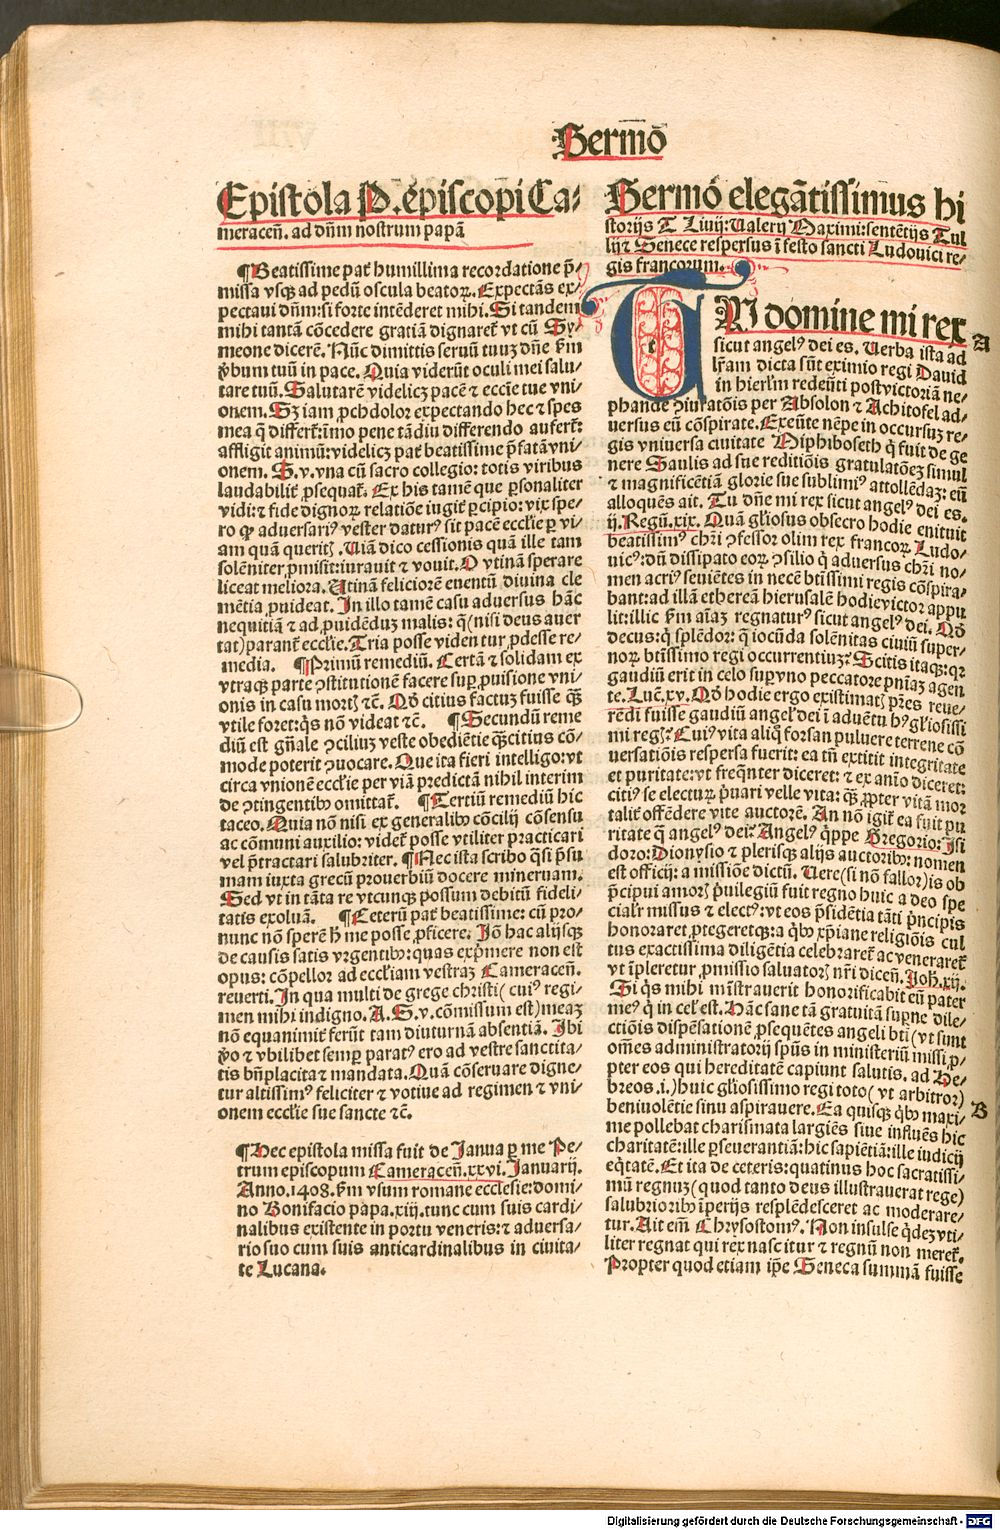 Sermo&#772;
Epistola P. ep̄iscopi Ca⸗
meraceñ. ad dñm nostrum papā
¶Beatissime pat̄ humillima recordatione p̄⸗
missa vsqꝫ ad pedū oscula beatoꝝ. Expectās ex⸗
pectaui dūm: si forte intēderet mihi. Si tandem
mihi tantā cōcedere gratiā dignaret̄ vt cū Sy⸗
meone dicerē. Nūc dimittis seruū tuuꝫ dñe ẜm
v̄bum tuū in pace. Quia viderūt oculi mei salu⸗
tare tuū. Salutarē videlicꝫ pacē ⁊ eccīe tue vni⸗
onem. Sꝫ iam ꝓchdolor expectando hec ⁊ spes
mea q̄ differt̄: īmo pene tādiu differendo aufert̄:
affligit animū: videlicꝫ pat̄ beatissime p̄fatā vni⸗
onem. S. v. vna cū sacro collegio: totis viribus
laudabilit̄ ꝓsequat̄. Ex his tamē que ꝑsonaliter
vidi: ⁊ fide dignoꝝ relatiōe iugit̄ ꝑcipio: vix spe⸗
ro ꝙ aduersariꝰ vester daturꝰ sit pacē ecclīe ꝑ vi⸗
am quā querit . Uiā dico cessionis quā ille tam
solēniter ꝓmisit: iurauit ⁊ vouit. O vtinā sperare
liceat meliora. Utinā feliciorē euentū diuina cle
mētia ꝓuideat. In illo tamē casu aduersus hāc
nequitiā ⁊ ad ꝓuidēduꝫ malis: q̄ (nisi deus auer
tat) parant̄ ecclīe. Tria posse viden tur ꝓdesse re⸗
media. ¶Primū remediū. Certā ⁊ solidam ex
vtraqꝫ parte ꝯstitutionē facere suꝑ ꝓuisione vni⸗
onis in casu mort ⁊c̄. Qd̄ citius factuꝫ fuisse qꝫ̄
vtile foret: q̇s nō videat ⁊c̄. ¶Secundū reme
diū est gñale ꝯciliuꝫ veste obediētie qꝫ̄citius cō⸗
mode poterit ꝯuocare. Que ita fieri intelligo: vt
circa vnionē ecclīe per viā predictā nihil interim
de ꝯtingentibꝰ omittat̄. ¶Tertiū remediū hic
taceo. Quia nō nisi ex generalibꝰ cōcilij cōsensu
ac cōmuni auxilio: videt̄ posse vtiliter practicari
vel p̄tractari salubriter. ¶Nec ista scribo q̄si p̄su
mam iuxta grecū prouerbiū docere mineruam.
Sed vt in tāta re vtcunqꝫ possum debitū fideli⸗
tatis exoluā. ¶Ceterū pat̄ beatissime: cū pro⸗
nunc nō sperē ꝑ me posse ꝓficere. Iō hac alijsqꝫ
de causis satis vrgentibꝰ: quas exp̄mere non est
opus: cōpellor ad ecclīam vestraꝫ Cameraceñ.
reuerti. In qua multi de grege christi (cuiꝰ regi⸗
men mihi indigno. A. S. v. cōmissum est) meaꝫ
nō equanimit̄ ferūt tam diuturnā absentiā. Ibi
v̄o ⁊ vbilibet semꝑ paratꝰ ero ad vestre sanctita⸗
tis bñplacita ⁊ mandata. Quā cōseruare digne⸗
tur altissimꝰ feliciter ⁊ votiue ad regimen ⁊ vni⸗
onem ecclīe sue sancte ⁊c̄.
¶Hec epistola missa fuit de Janua ꝑ me Pe⸗
trum episcopum Cameraceñ. xxvi. Januarij.
Anno. 1408. ẜm vsum romane ecclesie: domi⸗
no Bonifacio papa. xiij. tunc cum suis cardi⸗
nalibus existente in portu veneris: ⁊ aduersa⸗
rio suo cum suis anticardinalibus in ciuita⸗
te Lucana.
Sermō elegātissimus hi
storijs T. Liuij: Ualerij Maximi: sentētijs Tul
lij ⁊ Senece respersus ī festo sancti Ludouici re⸗
gis francorum.
TU domine mi rex
A
sicut angelꝰ dei es. Uerba ista ad
lr̄am dicta sūt eximio regi Dauid
in hierlm̄ redeūti post victoriā ne⸗
phande ꝯiuratōis per Absolon ⁊ Achitofel ad⸗
uersus eū cōspirate. Exeūte nēpe in occursuꝫ re⸗
gis vniuersa ciuitate Miphiboseth q̇ fuit de ge
nere Saulis ad sue reditiōis gratulatōeꝫ simul
⁊ magnificētiā glorie sue sublimiꝰ attollēdaꝫ: eū
alloquēs ait. Tu dñe mi rex sicut angelꝰ dei es.
ij. Regū. xix. Quā glīosus obsecro hodie enituit
beatissimꝰ chr̄i ꝯfessor olim rex francoꝝ Ludo⸗
uicꝰ: dū dissipato eoꝝ ꝯsilio q̇ aduersus chr̄i no⸗
men acriꝰ seuiētes in necē btīssimi regis cōspira⸗
bant: ad illā ethereā hierusalē hodie victor appu
lit: illic ẜm aīaꝫ regnaturꝰ sicut angelꝰ dei. Qd̄
decus: q̇ splēdor: q̄ iocūda solēnitas ciuiū super⸗
noꝝ btīssimo regi occurrentiuꝫ? Scitis itaqꝫ: qꝛ
gaudiū erit in celo suꝑ vno peccatore pnīaꝫ agen
te. Luc̄. xv. Qd̄ hodie ergo existimat pr̄es reue⸗
rēdi fuisse gaudiū angel dei ī aduētu hꝰ glīosissi
mi reg? Cuiꝰ vita aliq̄ forsan puluere terrene cō
uersatiōis respersa fuerit: ea tñ extitit integritate
et puritate: vt freq̄nter diceret: ⁊ ex anīo diceret:
citiꝰ se electuꝝ p̄uari velle vita: qꝫ̄ ꝓpter vitā mor
talit̄ offēdere vite auctorē. An nō igit̄ ea fuit pu
ritate q̄ angelꝰ dei? Angelꝰ q̇ppe Gregorio: Isi
doro: Dionysio ⁊ plerisqꝫ alijs auctoribꝰ: nomen
est officij: a missiōe dictū. Uere (si nō fallor) is ob
p̄cipui amor p̄uilegiū fuit regno huic a deo spe
cialr̄ missus ⁊ electꝰ: vt eos p̄sidētia tāti p̄ncipis
honoraret ꝓtegeretqꝫ: a qꝰ xp̄iane religiōis cul
tus exactissima diligētia celebraret̄ ac veneraret̄
vt īpleretur ꝓmissio saluator nr̄i diceñ. Joh̄. xij.
Si q̇s mihi mīstrauerit honorificabit eū pater
meꝰ q̇ in cel est. Hāc sane tā gratuitā suꝑne dile⸗
ctiōis dispēsationē ꝓsequētes angeli btī (vt sunt
om̄es administratorij spūs in ministeriū missi ꝓ⸗
pter eos qui hereditatē capiunt salutis. ad He⸗
breos. i.) huic glīosissimo regi toto (vt arbitror)
B
beniuolētie sinu aspirauere. Ea quisqꝫ qꝰ maxi⸗
me pollebat charismata largiēs siue influēs hic
charitatē: ille ꝑseuerantiā: hic sapiētiā: ille iudicij
eq̇tatē. Et ita de ceteris: quatinus hoc sacratissi⸗
mū regnuꝫ (quod tanto deus illustrauerat rege)
salubrioribꝰ īperijs resplēdesceret ac moderare⸗
tur. Ait em̄ Chrysostomꝰ. Non insulse q̇deꝫ vti⸗
liter regnat qui rex nascitur ⁊ regnū non meret̄.
Propter quod etiam ip̄e Seneca summā fuisse
Digitalisierung gefördert durch die Deutsche Forschungsgemeinschaft - DFG